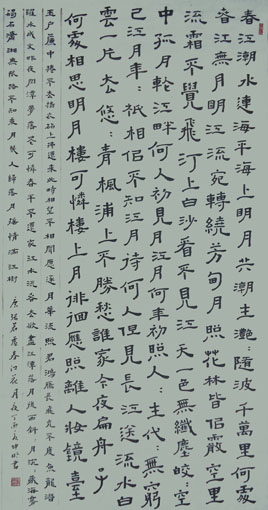 春江潮水連海平海上明月共潮生灩隨波千萬里何處
春江無月明江流宛轉繞芳甸月照花林皆似霰空里
流霜不覺飛汀上白沙看不見江天一色無纖塵皎:空
中孤月輪江畔何人初見月江月何年初照人:生代:無窮
已江月年:祇相似不知江月待何人但見長江送流水白
雲一片去悠:青楓浦上不勝愁誰家今夜扁舟子
何處相思明月樓可憐樓上月徘徊應照離人妝鏡臺
玉户簾中捲不去搗衣砧上拂還來此時相望不相聞願逐月華流照君鴻雁長飛光不度魚龍潛
躍水成文昨夜閑潭夢落花可憐春半不還家江水流春去欲盡江潭落月復西斜:月沉:藏海霧
碣石瀟湘無限路不知乘月幾人歸落月搖情滿江樹 唐張若虛春江花月夜 書